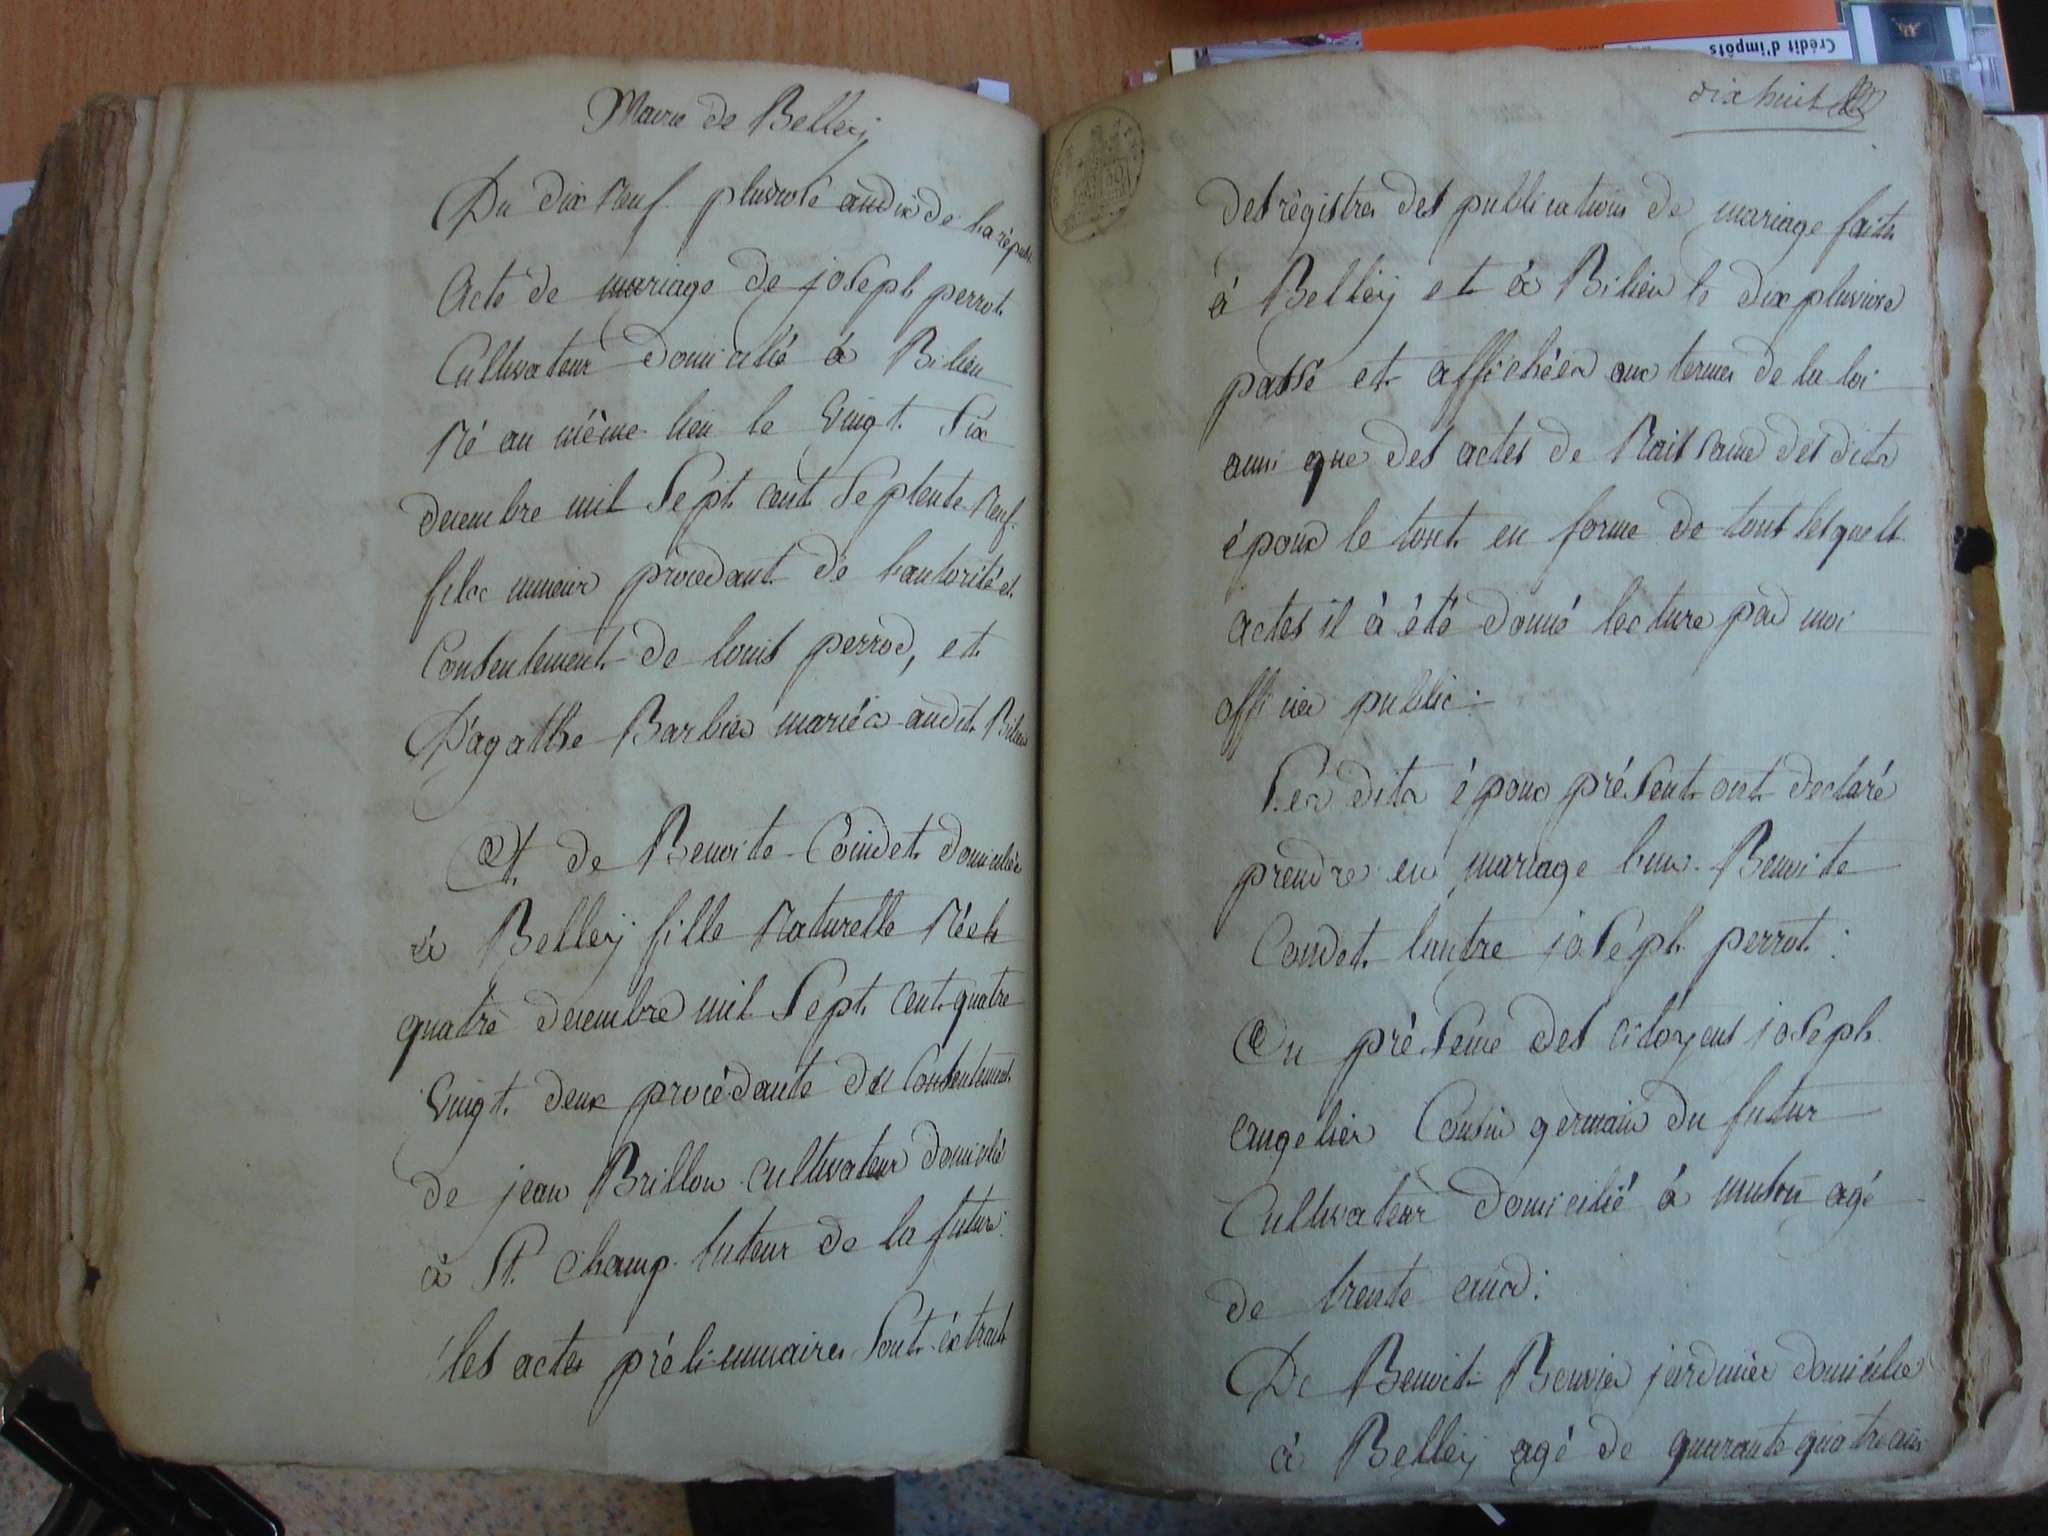 Mairie de Belleÿ
Du dix neuf pluviose an dix de la répub.
Acte de mariage de joseph perrot
Cultivateur domicilié à Bilieu
Né au même lieu le vingt Six
decembre mil Sept cent Septente Neuf
fils mineur procedant de l'autorité et
Consentement de louis perrod, et
D'agathe Barbier mariés audit Bilieu
Et de Benoite Coindet domiciliée
à Belleÿ fille Naturelle Née le
quatre decembre mil Sept cent quatre
Vingt deux procédante du Consentement
de jean Brillon cultivateur domicilié
à St. Champ tuteur de la future:
les actes préliminaires Sont extraits
Crédit d'impôts
dix huit
des régistres des publications de mariage faites
à Belleÿ et à Bilieu le dix pluviose
passé et affichées aux termes de la loi
ainsi que des actes de Naissance des dits
époux le tout en forme de tout lesquels
actes il à été donné lecture par moi
officier public:
Les dits époux présent ont declaré
prendre en mariage l'un Benoite
Coindet lautre joseph perrot:
En présence des citoyens joseph
Cousin germain du futur
Cultivateur domicilié à agé
de trente ans:
De Benoit Bouvier jardinier domicilié
à Belleÿ agé de quarante quatre ans